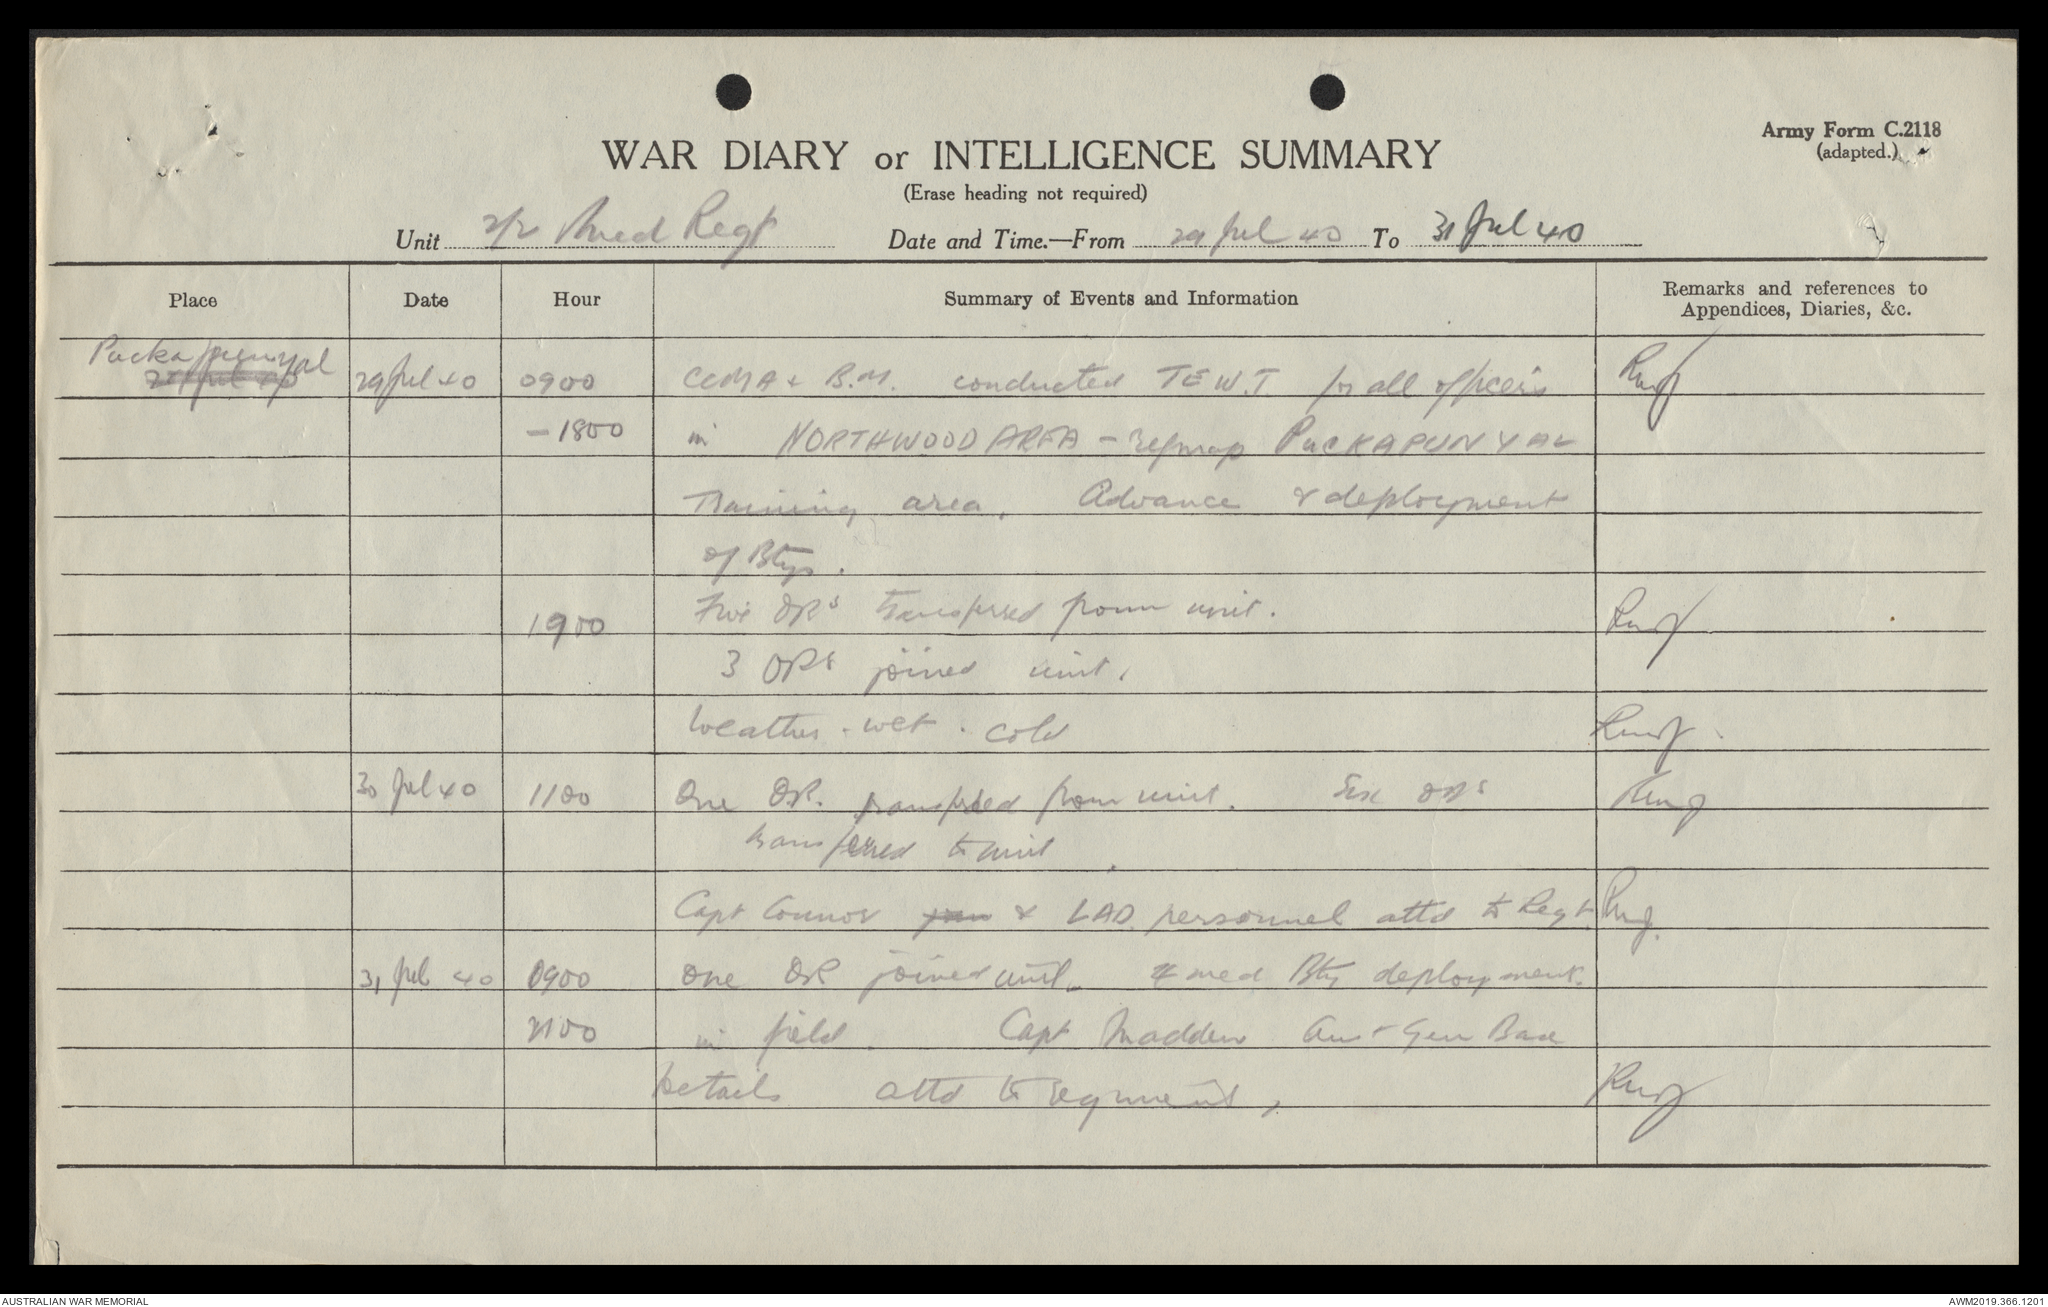 Army Form C.2118
(adapted.)
WAR DIARY or INTELLIGENCE SUMMARY
(Erase heading not required)
Unit 2/2 Med Regt Date and Time.—From 29 Jul 40 To 31 Jul 40
Place Date Hour Summary of Events and Information Remarks and references to
Appendices, Diaries, &c.
Puckapunyal
29 Jul 40 0900 CCMA & B.M. conducted T.E.W.T. for all officers
-1800 in NORTHWOOD AREA - ref map PUCKAPUNYAL
Training area. Advance & deployment
of Btys.
1900 Five ORs transferred from unit.
3 ORs joined unit.
Weather - wet - cold
30 Jul 40 1100 One OR. transferred from unit. Six ORs
transferred to unit.
Capt Connor & LAD. personnel attd to Regt
31 Jul 40 0900 One OR joined unit. 4 Med Bty deployment
2100 in field. Capt Madden Aust Gen Base
Details attd to regiment.
AUSTRALIAN WAR MEMORIAL AWM2019.366.1201